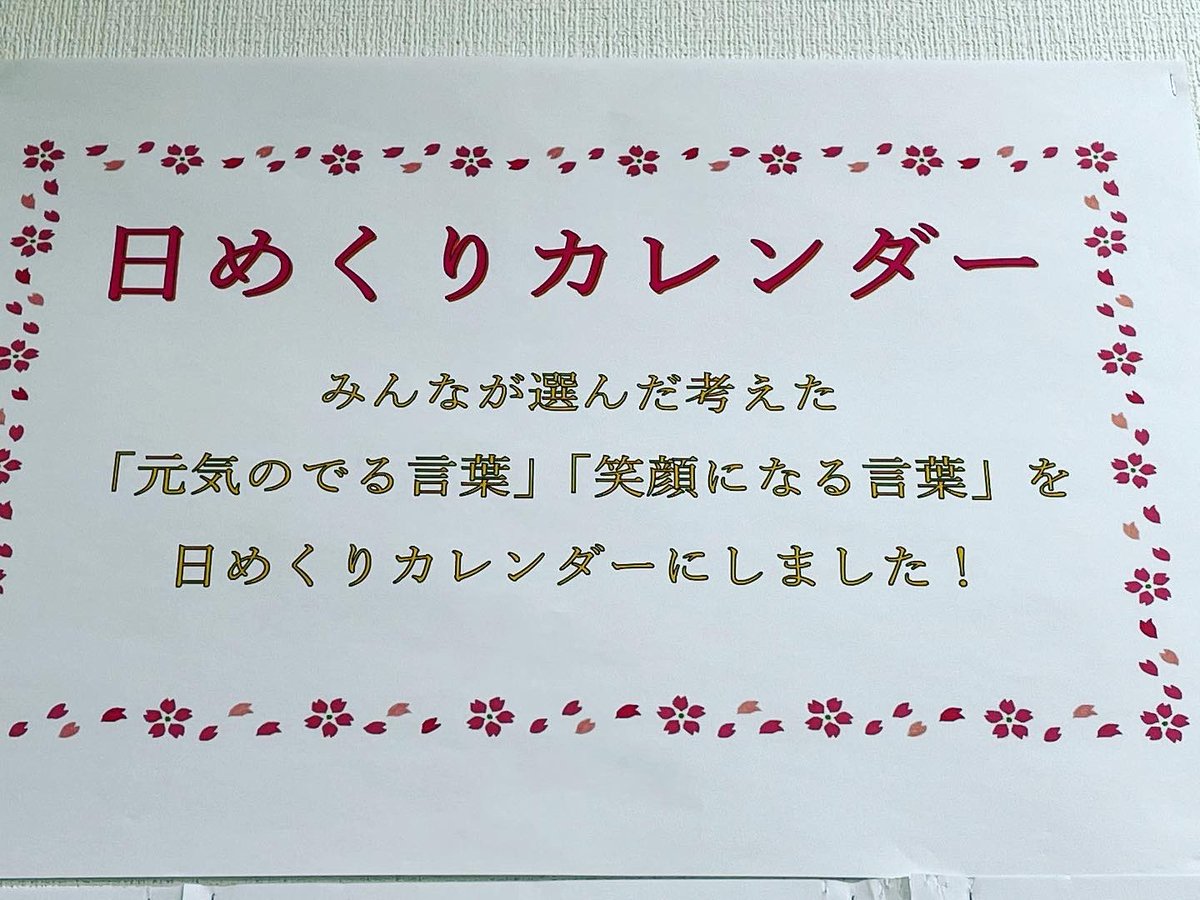 日めくりカレンダー
みんなが選んだ考えた
「元気のでる言葉」「笑顔になる言葉」を
日めくりカレンダーにしました！